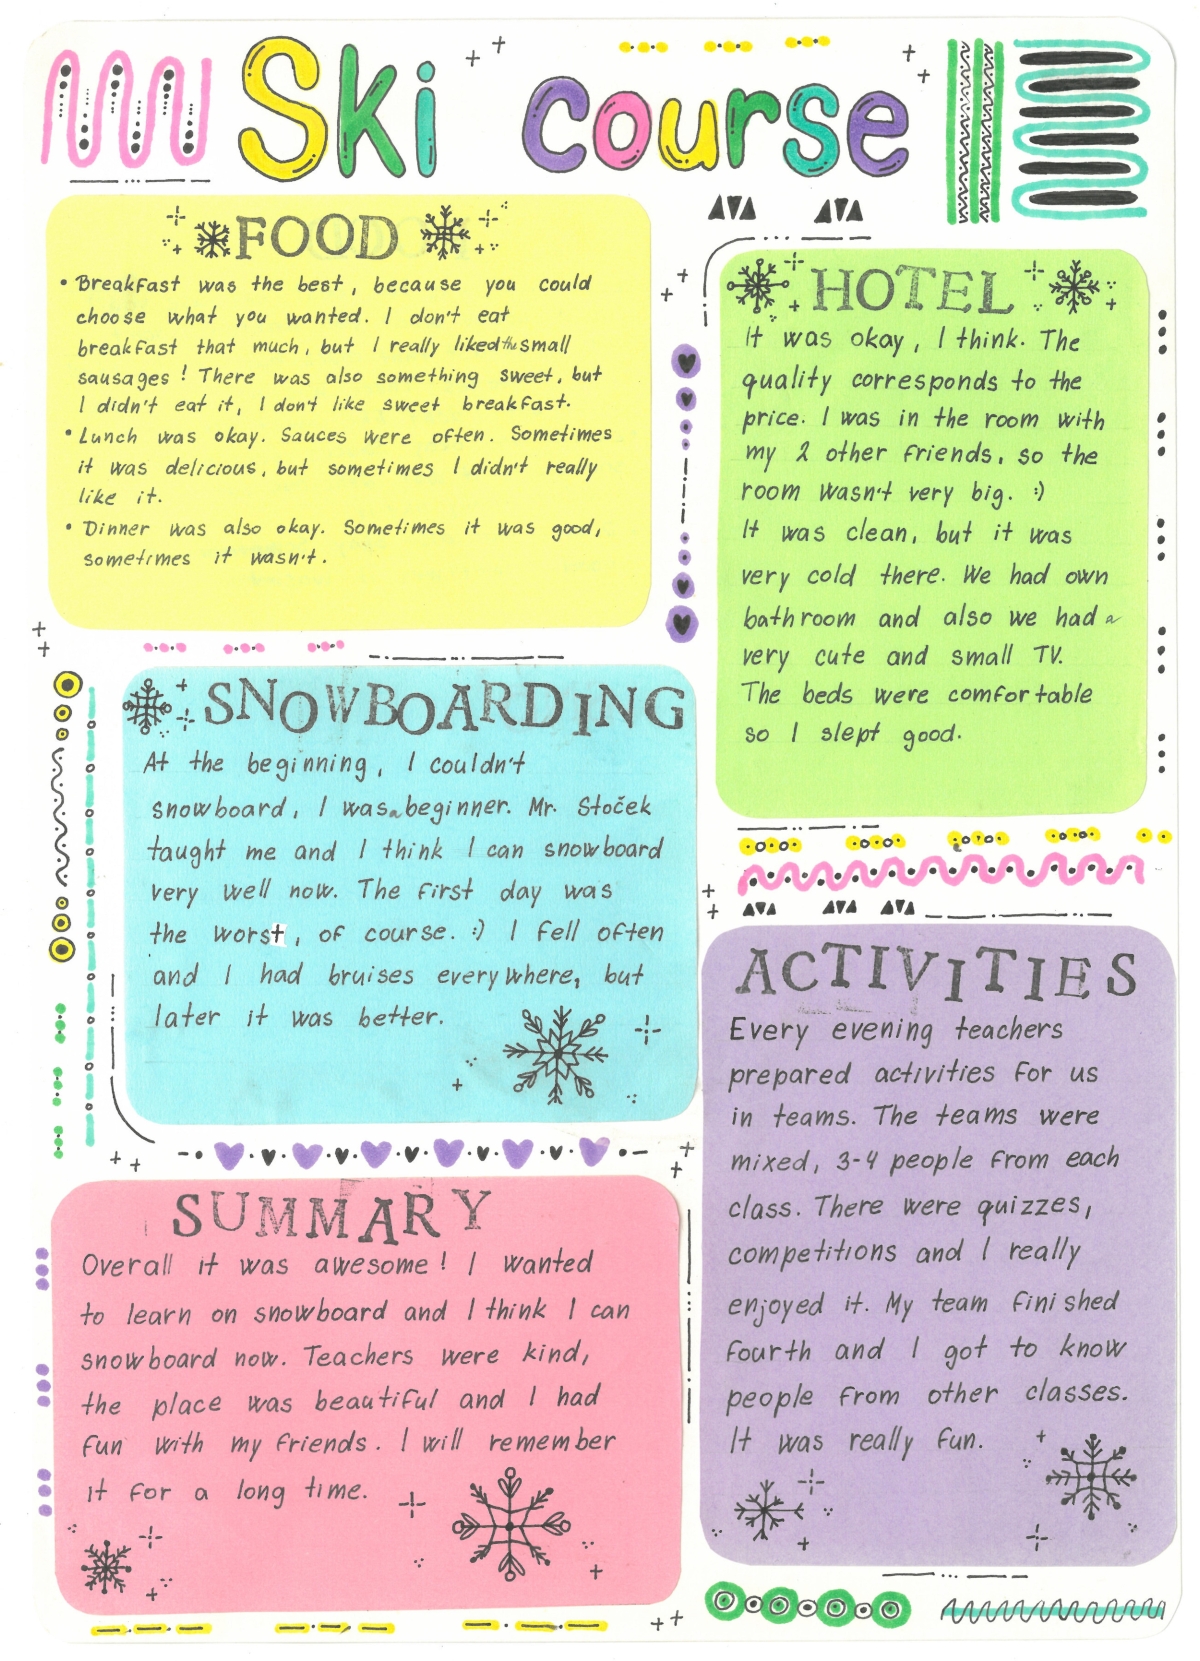 Ski course
FOOD
• Breakfast was the best, because you could
choose what you wanted. I don't eat
breakfast that much, but I really liked the small
sausages! There was also something sweet, but
I didn't eat it, I don't like sweet breakfast.
• Lunch was okay. Sauces were often. Sometimes
it was delicious, but sometimes I didn't really
like it.
• Dinner was also okay. Sometimes it was good,
sometimes it wasn't.
HOTEL
It was okay, I think. The
quality corresponds to the
price. I was in the room with
my 2 other friends, so the
room wasn't very big. :)
It was clean, but it was
very cold there. We had own
bathroom and also we had a
very cute and small TV.
The beds were comfortable
so I slept good.
SNOWBOARDING
At the beginning, I couldn't
snowboard, I was a beginner. Mr. Stoček
taught me and I think I can snowboard
very well now. The first day was
the worst, of course. :) I fell often
and I had bruises everywhere, but
later it was better.
ACTIVITIES
Every evening teachers
prepared activities for us
in teams. The teams were
mixed, 3-4 people from each
class. There were quizzes,
competitions and I really
enjoyed it. My team finished
fourth and I got to know
people from other classes.
It was really fun.
SUMMARY
Overall it was awesome! I wanted
to learn on snowboard and I think I can
snowboard now. Teachers were kind,
the place was beautiful and I had
fun with my friends. I will remember
it for a long time.